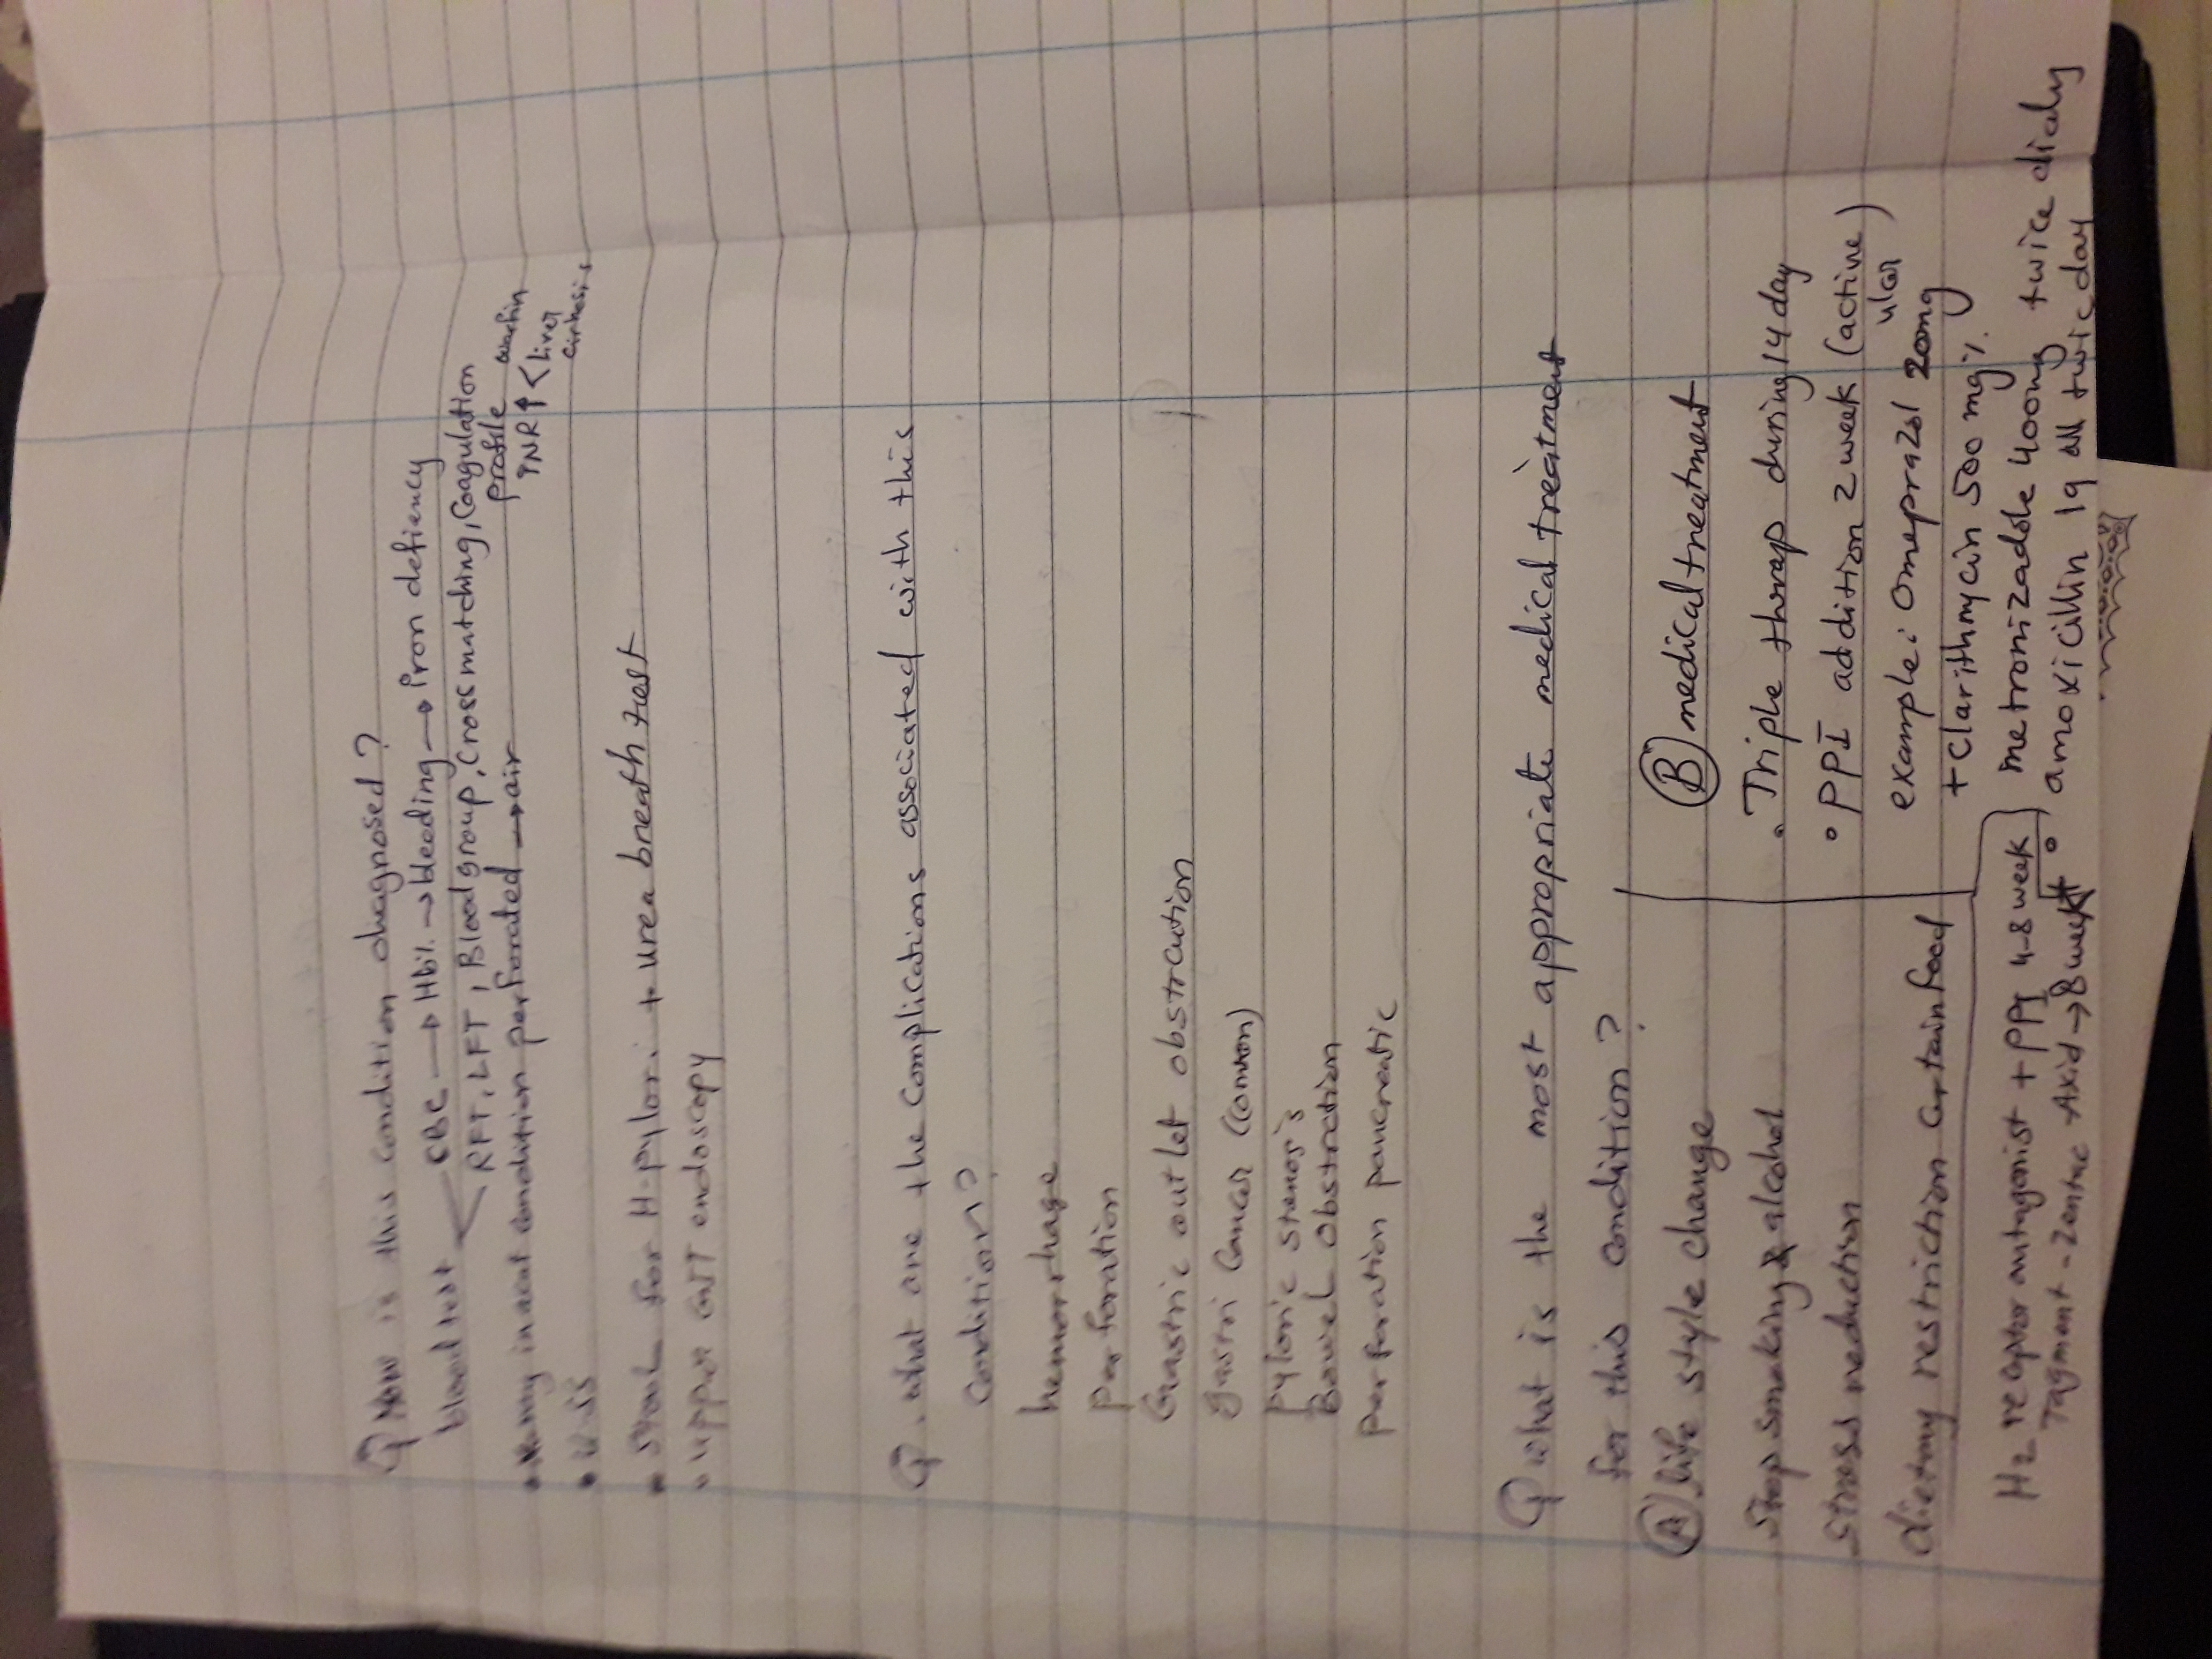 Q How is this condition diagnosed?
blood test < CBC → Hb% → bleeding → Iron defiency
RFT, LFT, Blood group, Cross matching, Coagulation profile
INR↑ < Liver
in acut condition perforated → air
• U-SS
• Stool for H-pylori + urea breath test
• upper GIT endoscopy
Q. what are the complications associated with this
condition?
hemorrhage
perforation
Gastric outlet obstraction
gastri Cancer (common)
pyloric stenosis
Bowel obstraction
perforation pancreatic
Q what is the most appropriate medical treatment
for this condition?
(A) life style change
stop smoking & alcohol
stress reduction
dietary restriction certain food
H2 receptor antagonist + PPI 4-8 week
Tagment - Zentac Axid → 8 week
(B) medical treatment
• Triple therap during 14 day
• PPI addition 2 week (active ulcer)
example: Omeprazol 20mg
+ Clarithmycin 500 mg%
metronizadole 400mg twice dialy
amoxicillin 1g all twic day